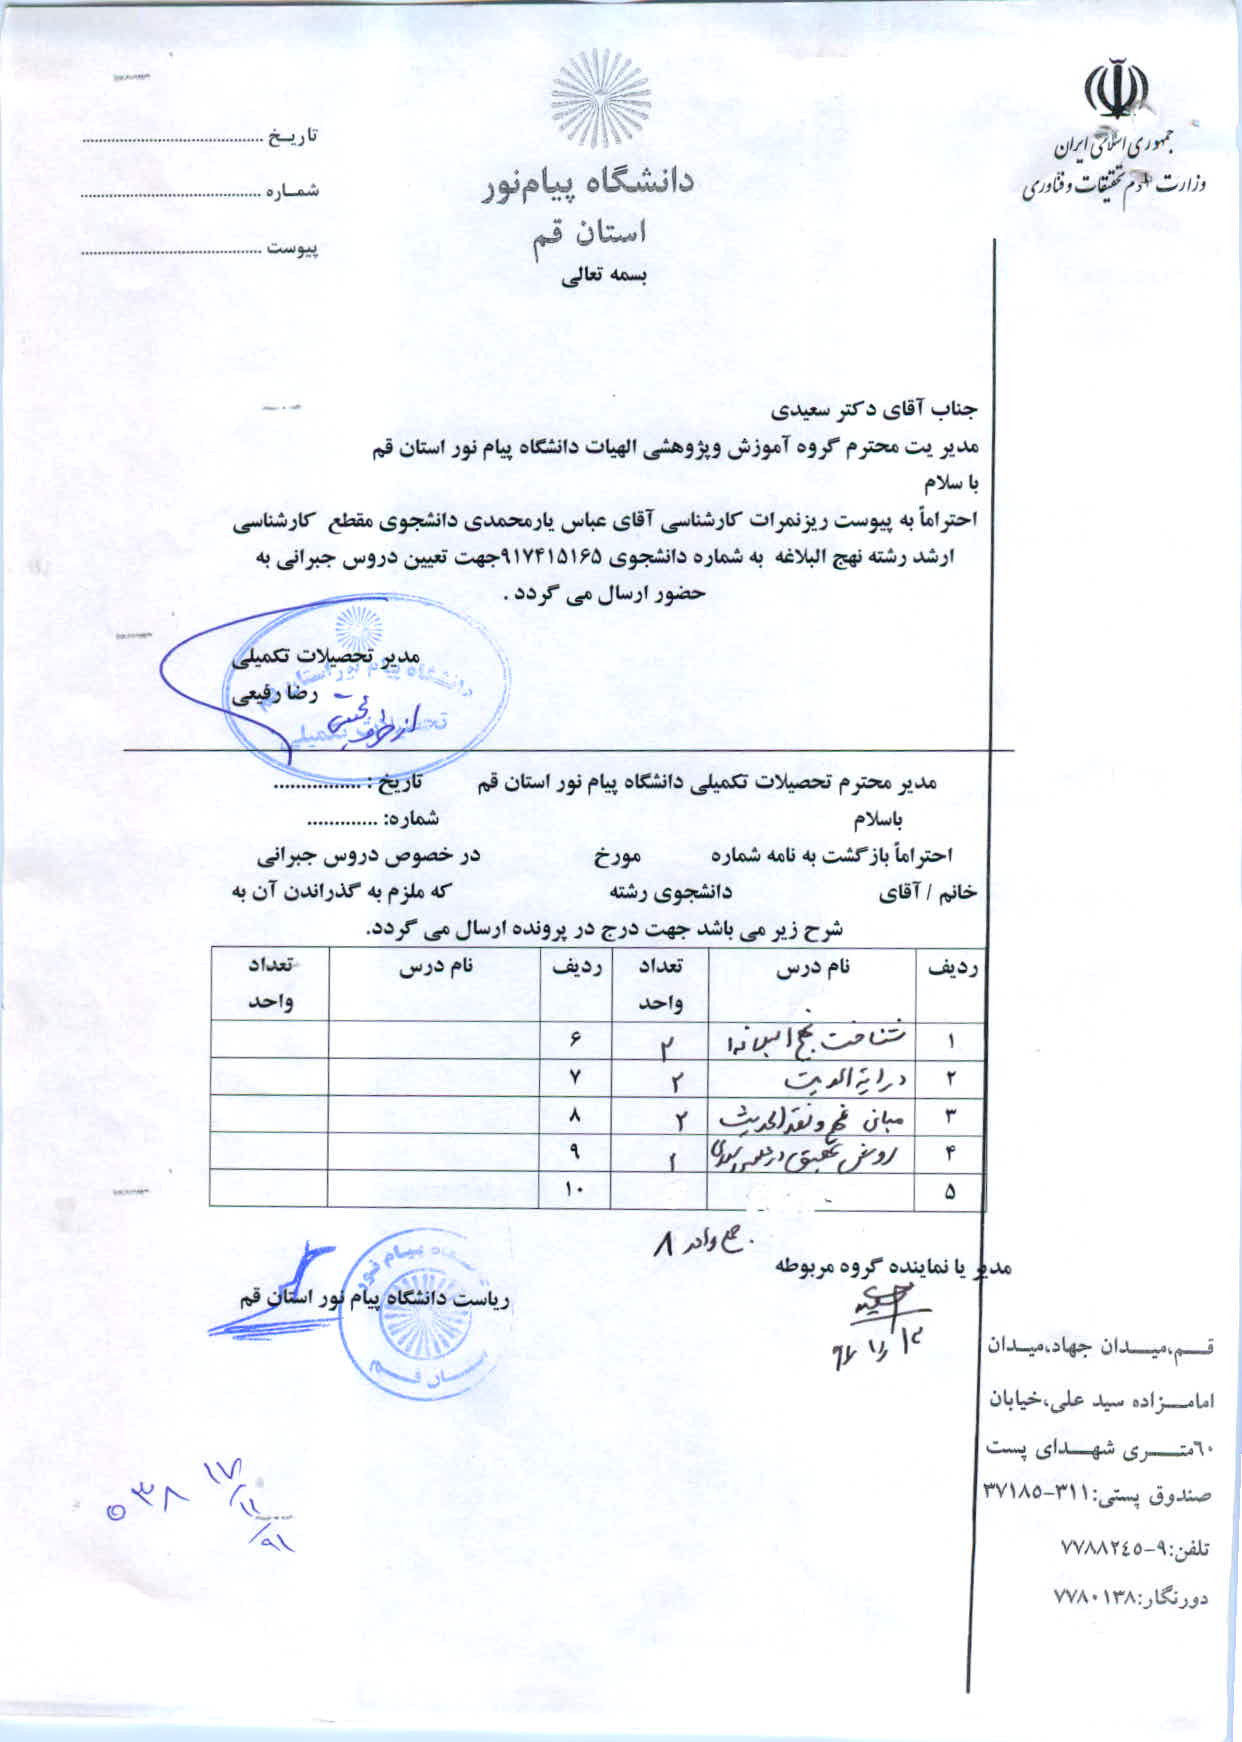 جمهوری اسلامی ایران
وزارت علوم تحقیقات و فناوری
دانشگاه پیام‌نور
استان قم
بسمه تعالی
تاریـخ ............................................
شمـاره ............................................
پیوست ............................................
جناب آقای دکتر سعیدی
مدیر یت محترم گروه آموزش وپژوهشی الهیات دانشگاه پیام نور استان قم
با سلام
احتراماً به پیوست ریزنمرات کارشناسی آقای عباس یارمحمدی دانشجوی مقطع کارشناسی
ارشد رشته نهج البلاغه به شماره دانشجوی ۹۱۷۴۱۵۱۶۵جهت تعیین دروس جبرانی به
حضور ارسال می گردد .
مدیر تحصیلات تکمیلی
رضا رفیعی
از طرف
دانشگاه پیام نور استان قم
تحصیلات تکمیلی
مدیر محترم تحصیلات تکمیلی دانشگاه پیام نور استان قم تاریخ : ................
باسلام شماره: .............
احتراماً بازگشت به نامه شماره مورخ در خصوص دروس جبرانی
خانم / آقای دانشجوی رشته که ملزم به گذراندن آن به
شرح زیر می باشد جهت درج در پرونده ارسال می گردد.
ردیف نام درس تعداد واحد ردیف نام درس تعداد واحد
۱ شناخت نهج البلاغه ۲ ۶
۲ درایة الحدیث ۲ ۷
۳ مبانی فهم و نقد الحدیث ۲ ۸
۴ روش تحقیق در علوم ۱ ۹
۵ ۱۰
جمع واحد ۸
مدیر یا نماینده گروه مربوطه
ریاست دانشگاه پیام نور استان قم
دانشگاه پیام نور
استان قم
۱۷/۱۱/۹۱
۳۸
قـم،میـدان جهاد،میـدان
امامـزاده سید علی،خیابان
٦٠متـری شهـدای پست
صندوق پستی:۳۱۱-۳۷۱۸۵
تلفن:۹-۷۷۸۸۲٤٥
دورنگار:۷۷۸۰۱۳۸